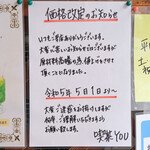 価格改定のお知らせ
いつもご来店ありがとうございます。
大変心苦しいお知らせではございますが
原材料高騰の為、値上げさせて
頂くことになりました。
令和5年5月1日より〜
大変ご迷惑をお掛けしますが
何卒ご理解いただけますよう
お願い致します。
喫茶YOU